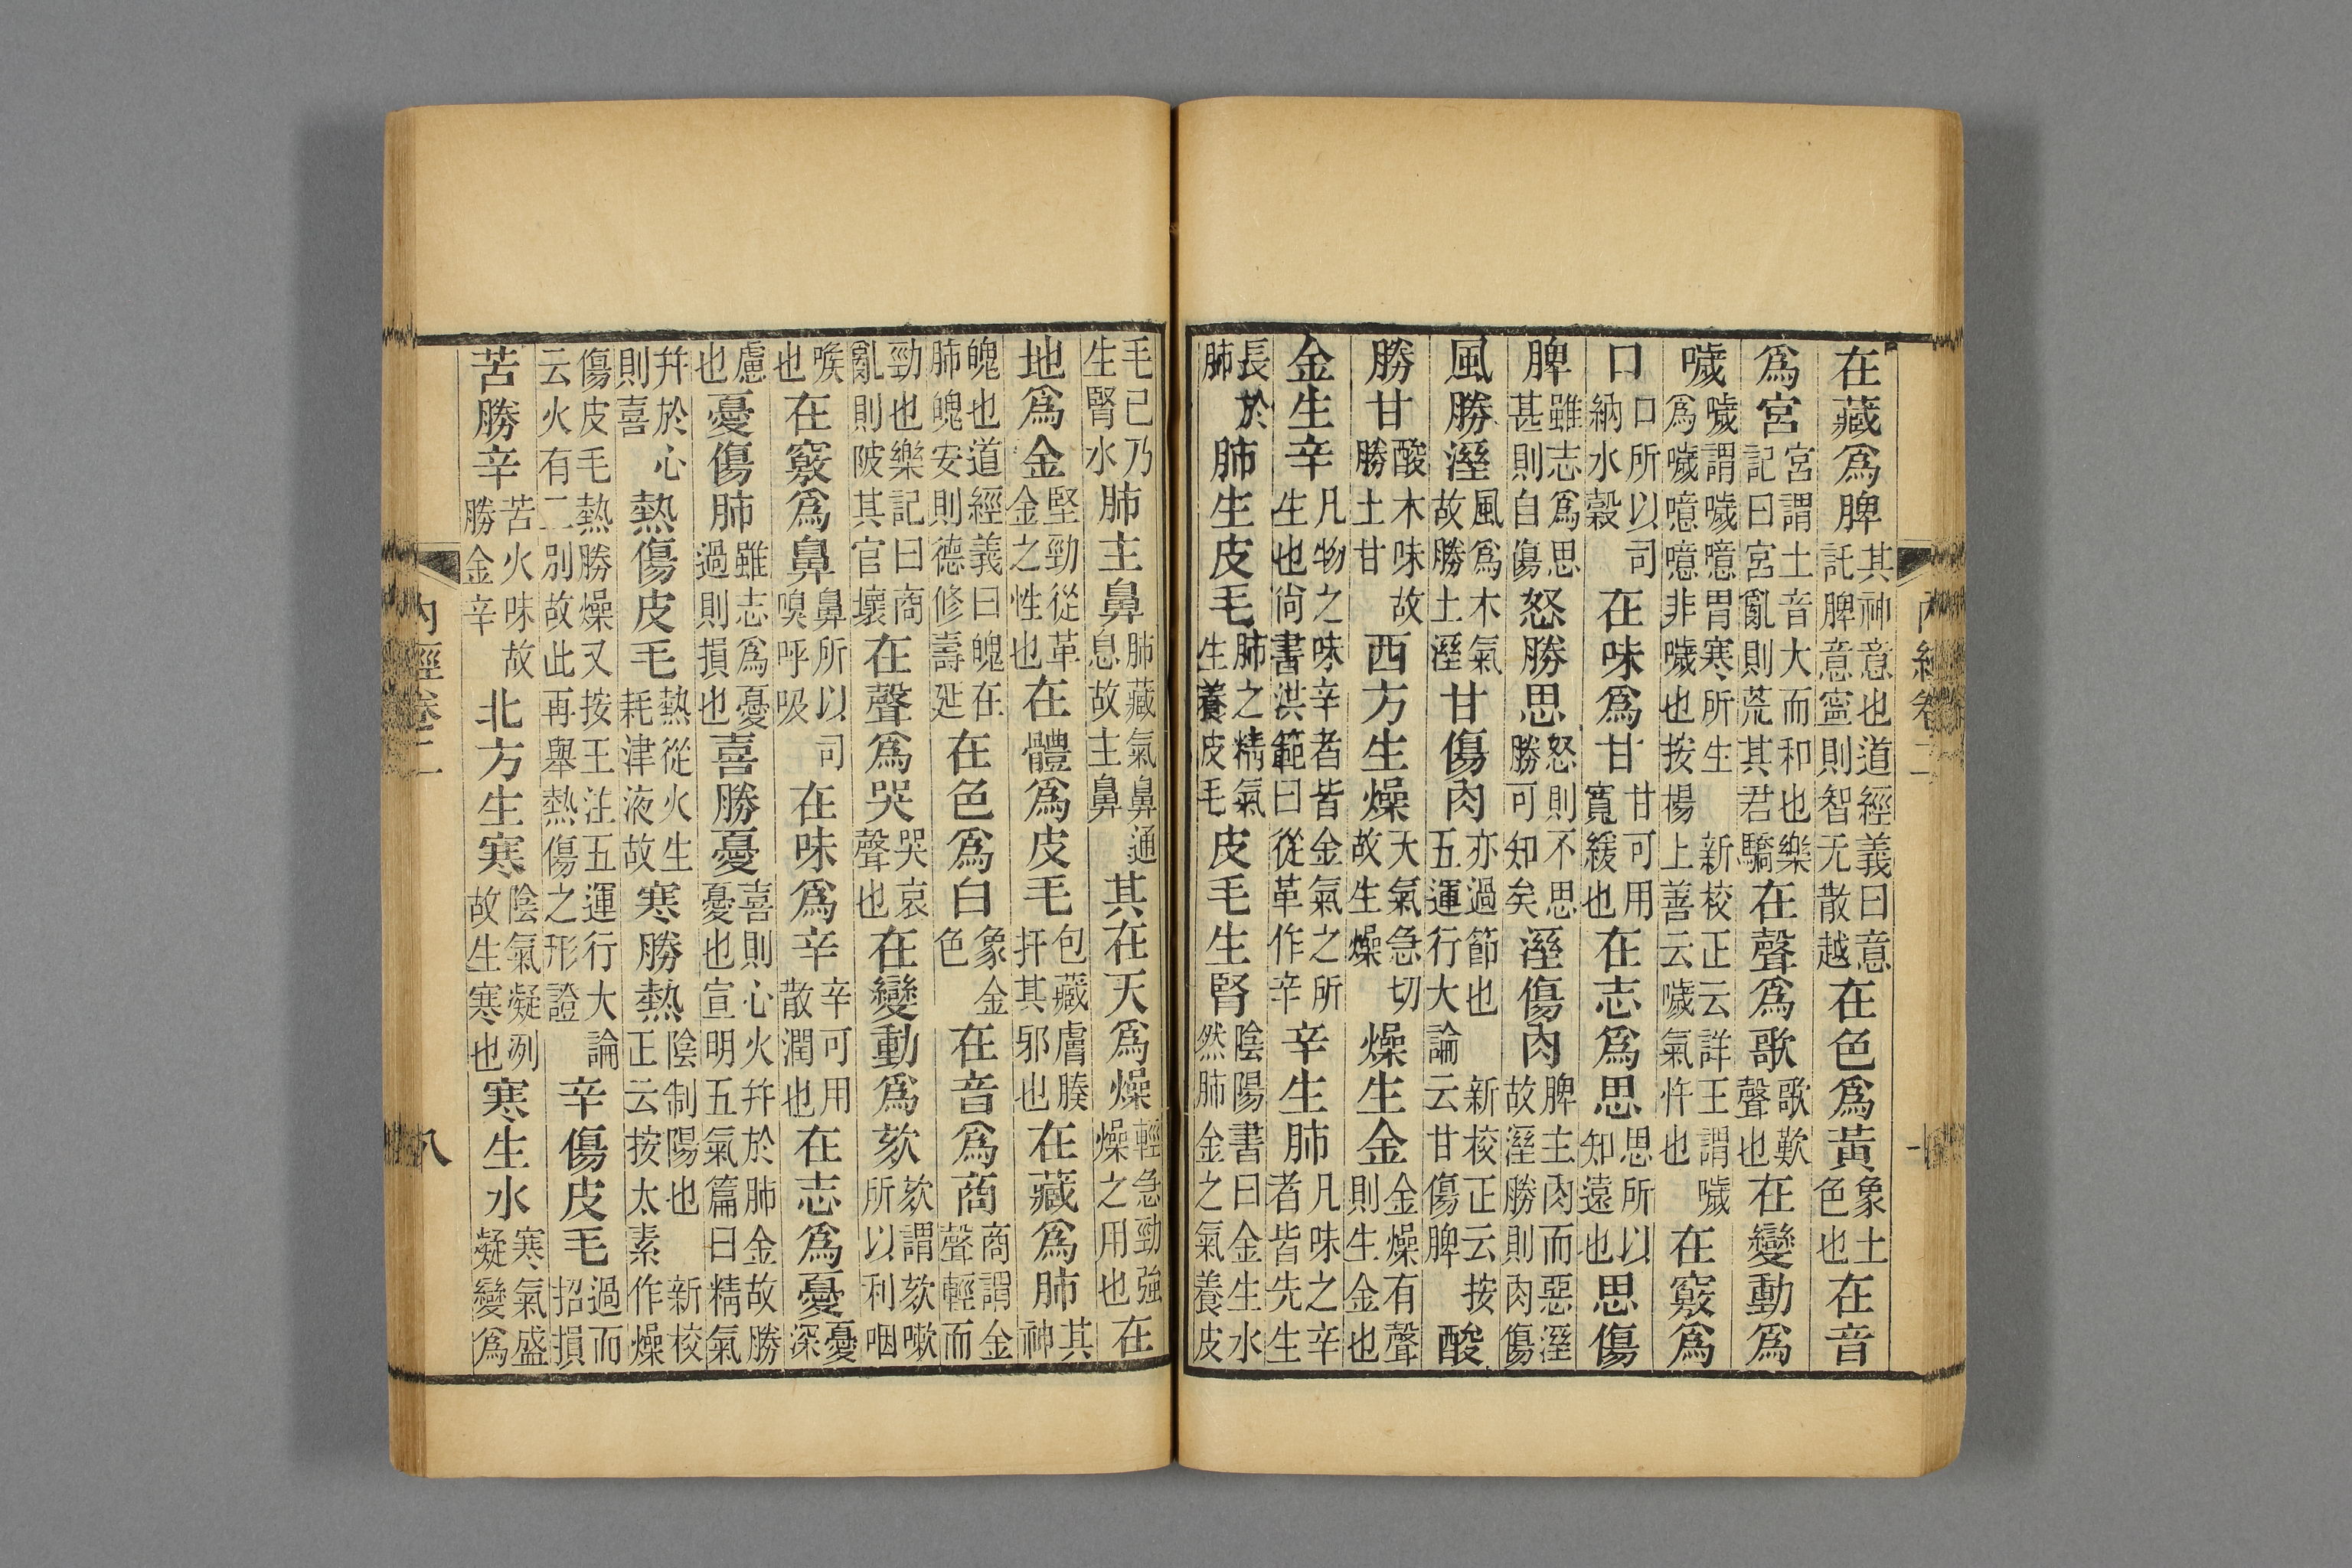 在藏爲脾其神意也道經義曰意託脾意寧則智无散越在色爲黃象土色也在音
爲宮宮謂土音大而和也樂記曰宮亂則荒其君驕在聲爲歌歌歎聲也在變動爲
噦噦謂噦噫胃寒所生爲噦噫噫非噦也按楊上善云噦氣忤也新校正云詳王謂噦在竅爲
口口所以司納水穀在味爲甘甘可用寬緩也在志爲思思所以知遠也思傷
脾雖志爲思甚則自傷怒勝思怒則不思勝可知矣溼傷肉脾主肉而惡溼故溼勝則肉傷
風勝溼風爲木氣故勝土溼甘傷肉亦過節也新校正云按五運行大論云甘傷脾酸
勝甘酸木味故勝土甘西方生燥天氣急切故生燥燥生金金燥有聲則生金也
金生辛凡物之味辛者皆金氣之所生也尚書洪範曰從革作辛辛生肺凡味之辛者皆先生
長於肺肺生皮毛肺之精氣生養皮毛皮毛生腎陰陽書曰金生水然肺金之氣養皮
毛已乃生腎水肺主鼻肺藏氣鼻通息故主鼻其在天爲燥輕急勁強燥之用也在
地爲金堅勁從革金之性也在體爲皮毛包藏膚腠扞其邪也在藏爲肺其神
魄也道經義曰魄在肺魄安則德修壽延在色爲白象金色在音爲商商謂金聲輕而
勁也樂記曰商亂則陂其官壞在聲爲哭哭哀聲也在變動爲欬欬謂欬嗽所以利咽
喉也在竅爲鼻鼻所以司嗅呼吸在味爲辛辛可用散潤也在志爲憂憂深
慮也憂傷肺雖志爲憂過則損也喜勝憂喜則心火幷於肺金故勝憂也宣明五氣篇曰精氣
幷於心則喜熱傷皮毛熱從火生耗津液故寒勝熱陰制陽也新校正云按太素作燥
傷皮毛熱勝燥又按王注五運行大論云火有二別故此再舉熱傷之形證辛傷皮毛過而招損
苦勝辛苦火味故勝金辛北方生寒陰氣凝冽故生寒也寒生水寒氣盛凝變爲
內經卷二
八